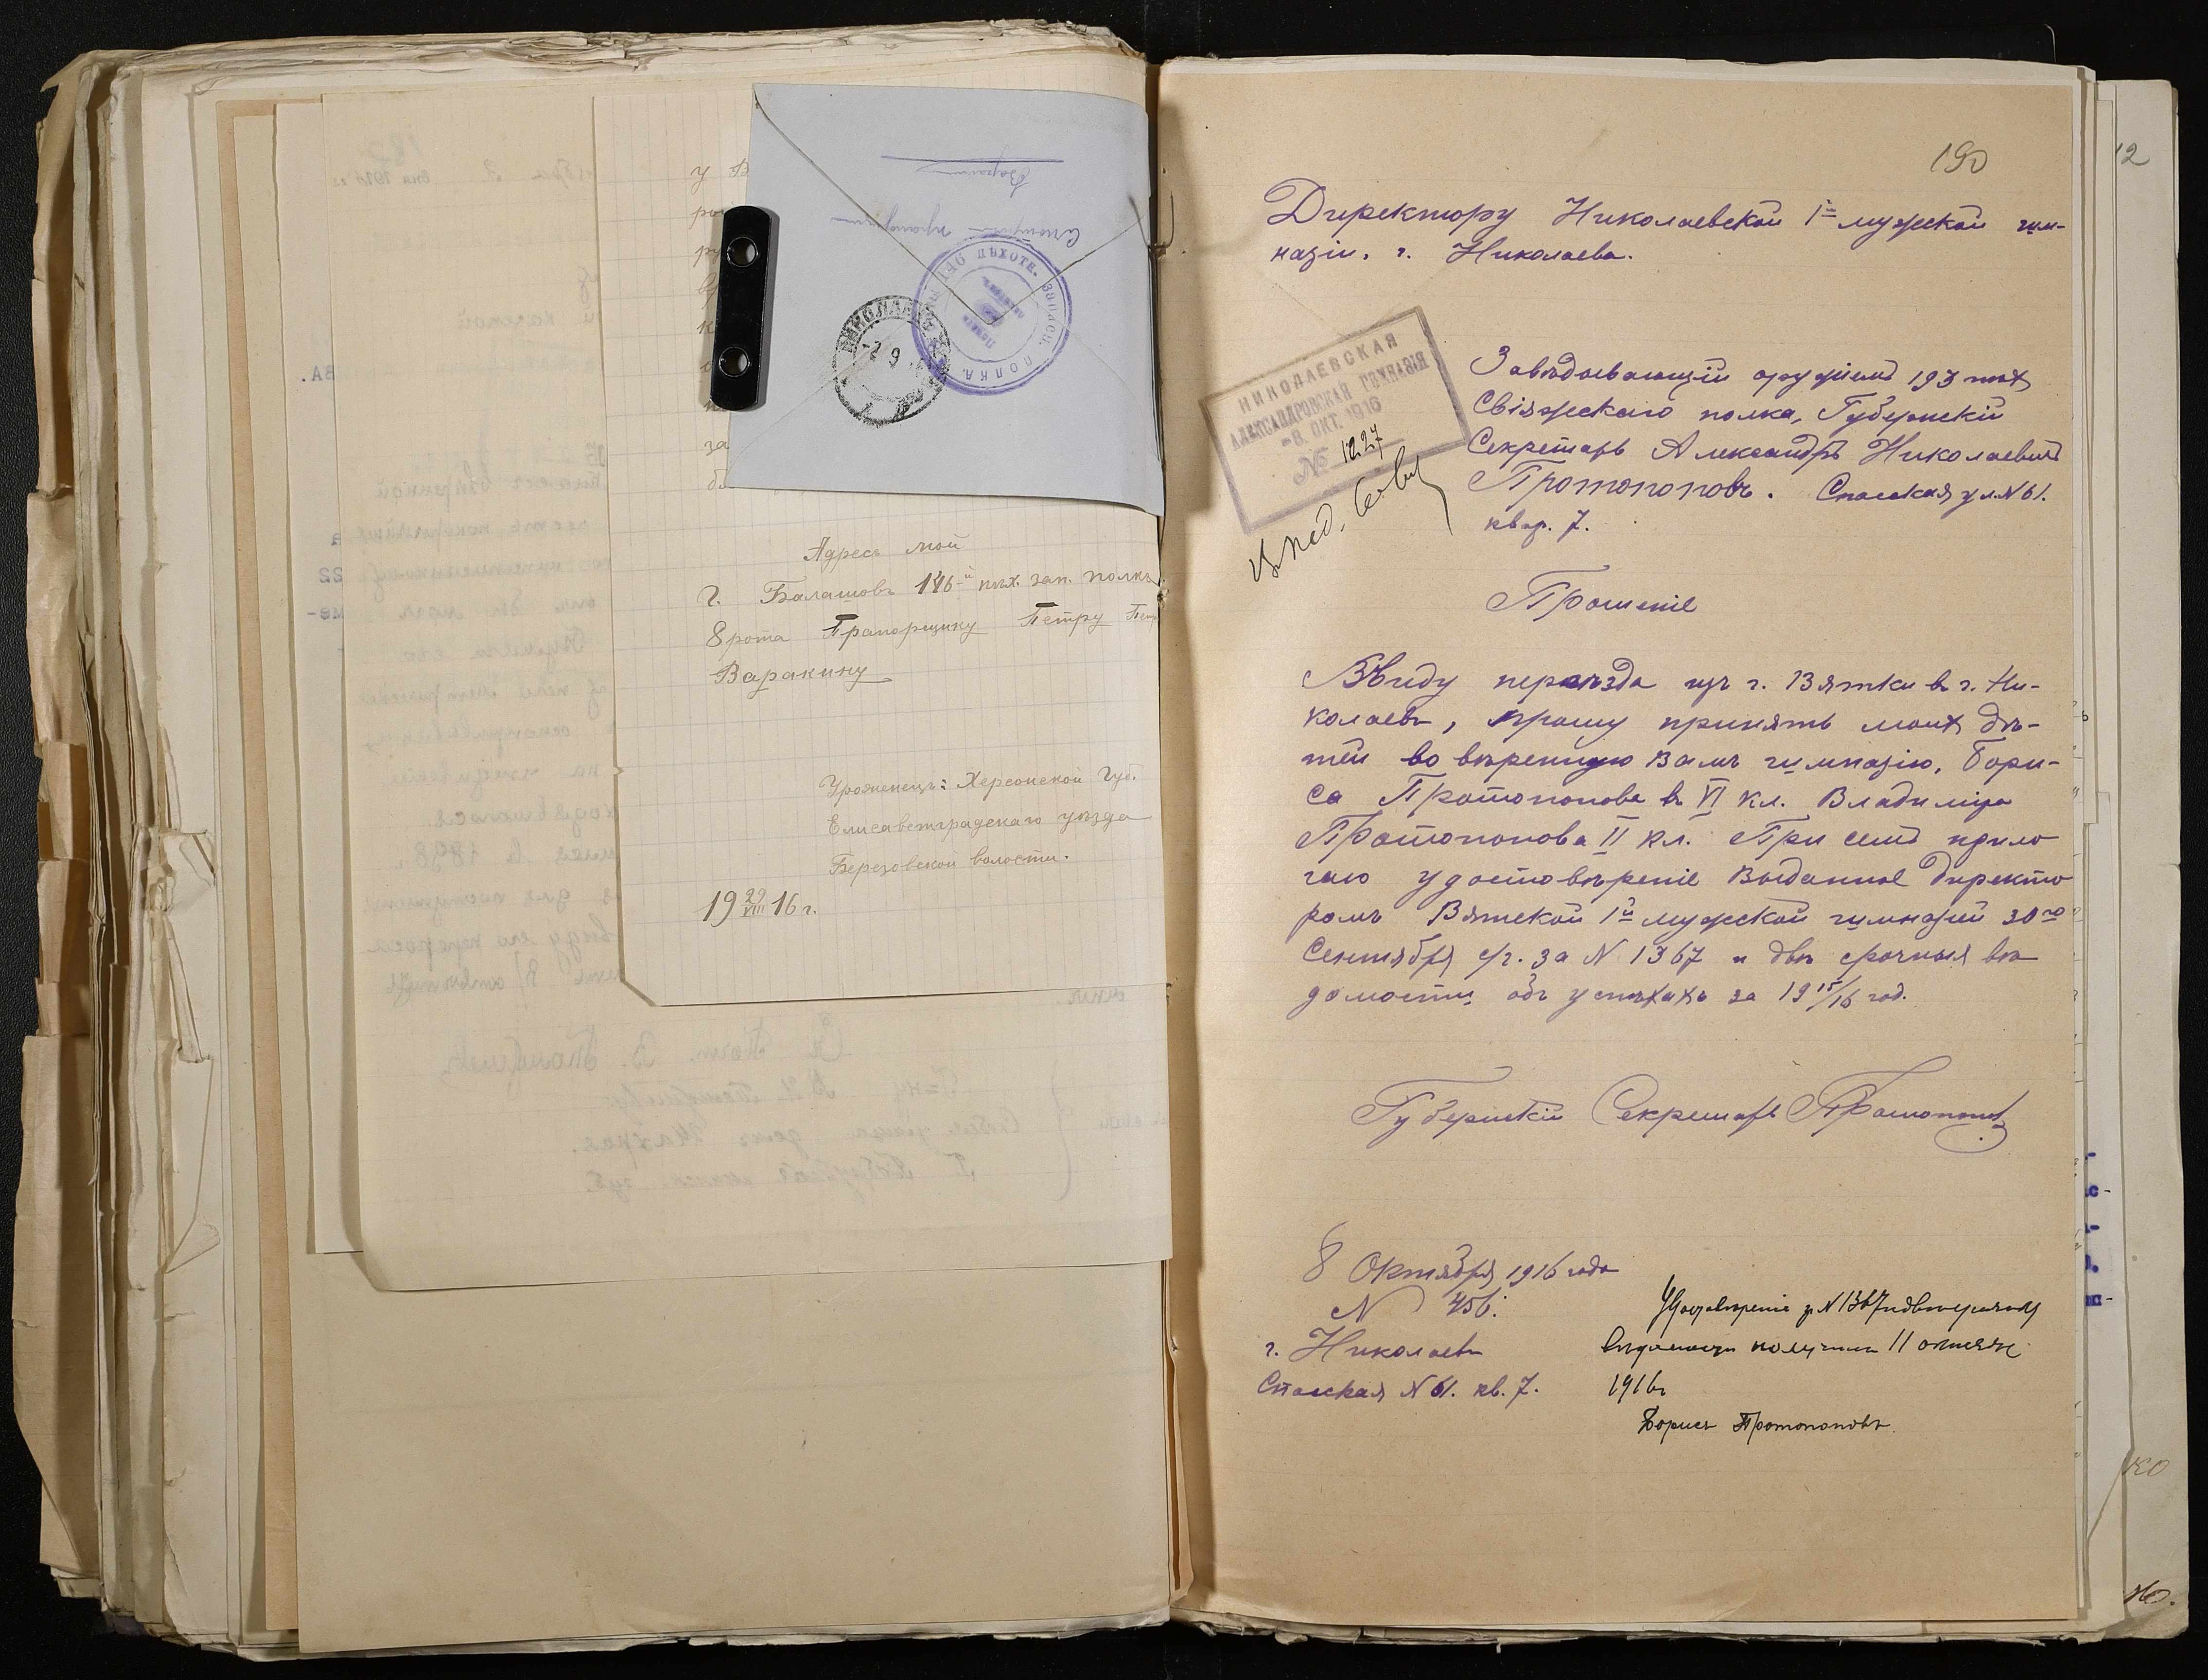 Адресъ мой
г. Балашовъ 146-й пѣх. зап. полкъ
8 рота Прапорщику Петру
Варакину
Уроженецъ: Херсонской Губ.
Елисаветградскаго уѣзда
Березовской волости.
19 29/VIII 16 г.
190
Директору Николаевской 1й мужской гим-
назіи. г. Николаева.
НИКОЛАЕВСКАЯ
АЛЕКСАНДРОВСКАЯ ГИМНАЗІЯ
-8. ОКТ. 1916
№ 1227
Завѣдывающій оружіемъ 193 пѣх
Свіяжскаго полка, Губернскій
Секретарь Александръ Николаевичъ
Протопоповъ. Спасская ул. N 61.
квар. 7.
Прошеніе
Ввиду переѣзда изъ г. Вятки въ г. Ни-
колаевъ, прошу принять моихъ дѣ-
тей во ввѣренную Вамъ гимназію, Бори-
са Протопопова въ VI кл. Владиміра
Протопопова II кл. При семъ прила
гаю удостовѣреніе выданное директо
ромъ Вятской 1й мужской гимназіи 30го
Сентября с/г. за N 1367 и двѣ срочныя вѣ
домости объ успѣхахъ за 19 15/16 год.
Губернскій Секретарь Протопоповъ
8 Октября 1916 года
N 456.
г. Николаевъ
Спасская N 61. кв. 7.
Удостовѣреніе за N 1367 и двѣ срочныя
вѣдомости получилъ 11 октября
1916 г
Борисъ Протопоповъ.